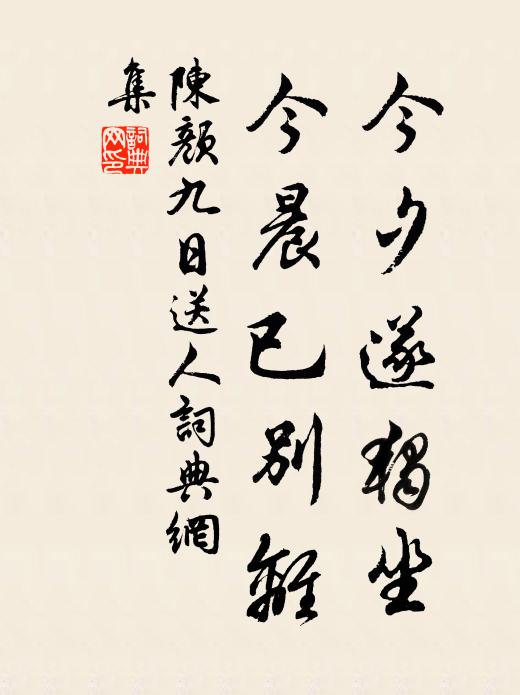 今夕遂獨坐
今晨已別離
陳顏九日送人詞典網
集
詞典網印